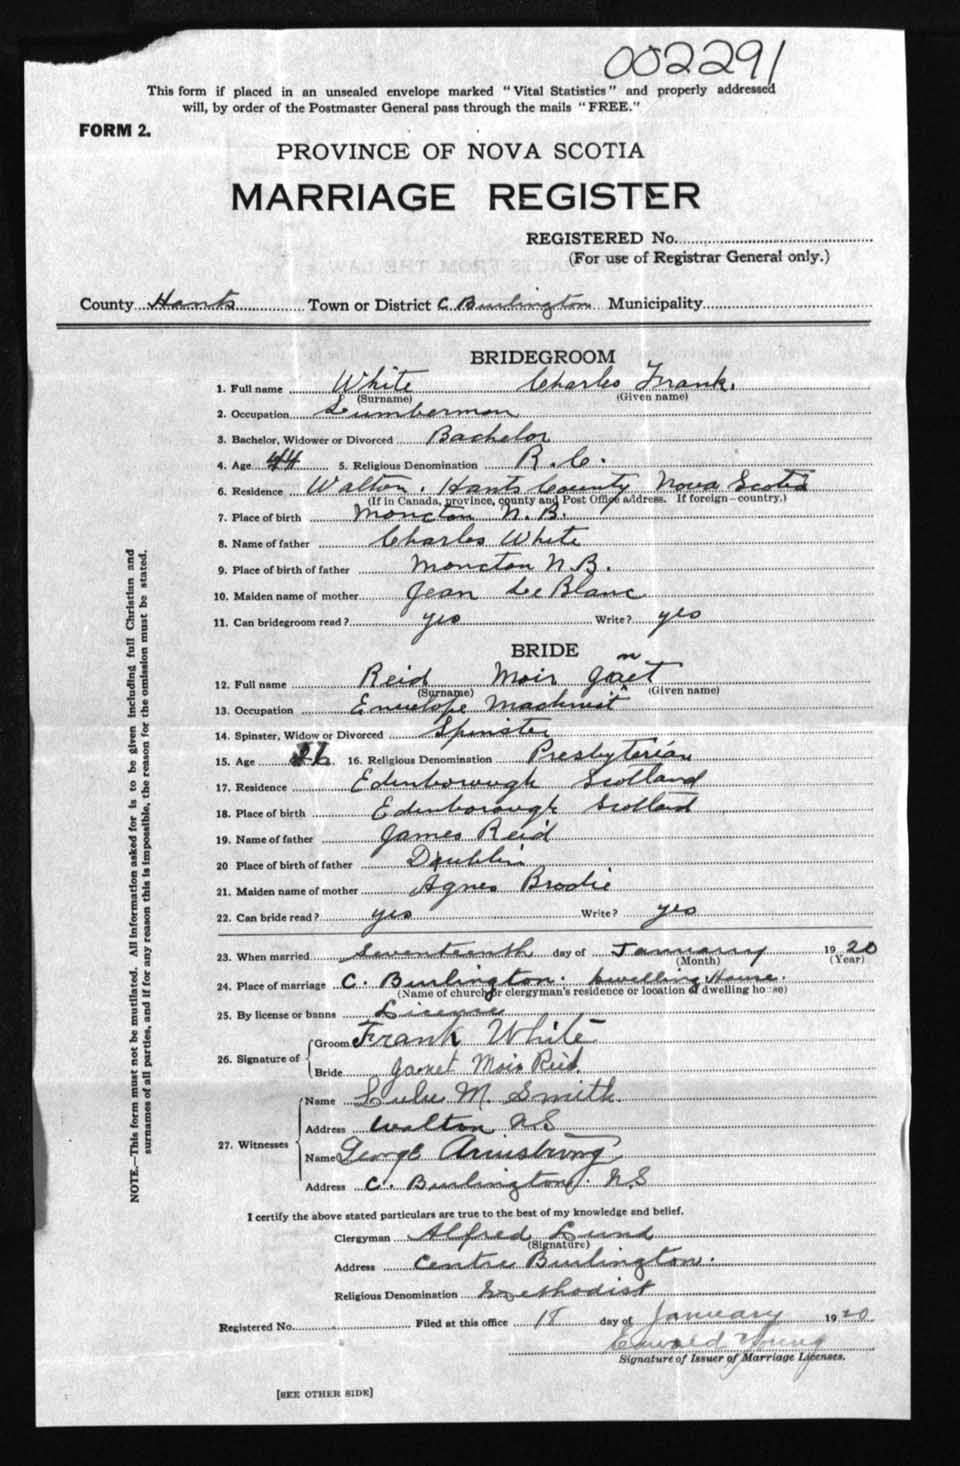 002291
This form if placed in an unsealed envelope marked "Vital Statistics" and properly addressed
will, by order of the Postmaster General pass through the mails "FREE."
FORM 2.
PROVINCE OF NOVA SCOTIA
MARRIAGE REGISTER
REGISTERED No.
(For use of Registrar General only.)
County Hants Town or District C. Burlington Municipality
BRIDEGROOM
1. Full name White Charles Frank.
(Surname) (Given name)
2. Occupation Lumberman
3. Bachelor, Widower or Divorced Bachelor
4. Age 44 5. Religious Denomination R.C.
6. Residence Walton, Hants County Nova Scotia
(If in Canada, province, county and Post Office address. If foreign—country.)
7. Place of birth Moncton N.B.
8. Name of father Charles White
9. Place of birth of father Moncton N.B.
10. Maiden name of mother Jean LeBlanc
11. Can bridegroom read? yes Write? yes
BRIDE
12. Full name Reid Moir
(Surname) (Given name)
13. Occupation Envelope Machinist
14. Spinster, Widow or Divorced Spinster
15. Age 16. Religious Denomination Presbyterian
17. Residence Edinborough Scotland
18. Place of birth Edinborough Scotland
19. Name of father James Reid
20 Place of birth of father Dublin
21. Maiden name of mother Agnes Brodie
22. Can bride read? yes Write? yes
23. When married Seventeenth day of January 1920
(Month) (Year)
24. Place of marriage C. Burlington. Dwelling House.
(Name of church or clergyman's residence or location of dwelling house)
25. By license or banns License
26. Signature of Groom Frank White
Bride Moir Reid.
27. Witnesses Name Lulu M. Smith.
Address Walton N.S.
Name George Armstrong
Address C. Burlington. N.S
I certify the above stated particulars are true to the best of my knowledge and belief.
Clergyman Alfred Lund
(Signature)
Address Centre Burlington.
Religious Denomination Methodist
Registered No. Filed at this office 18 day of January 1920
Young
Signature of Issuer of Marriage Licenses.
[SEE OTHER SIDE]
NOTE.—This form must not be mutilated. All information asked for is to be given including full Christian and
surnames of all parties, and if for any reason this is impossible, the reason for the omission must be stated.